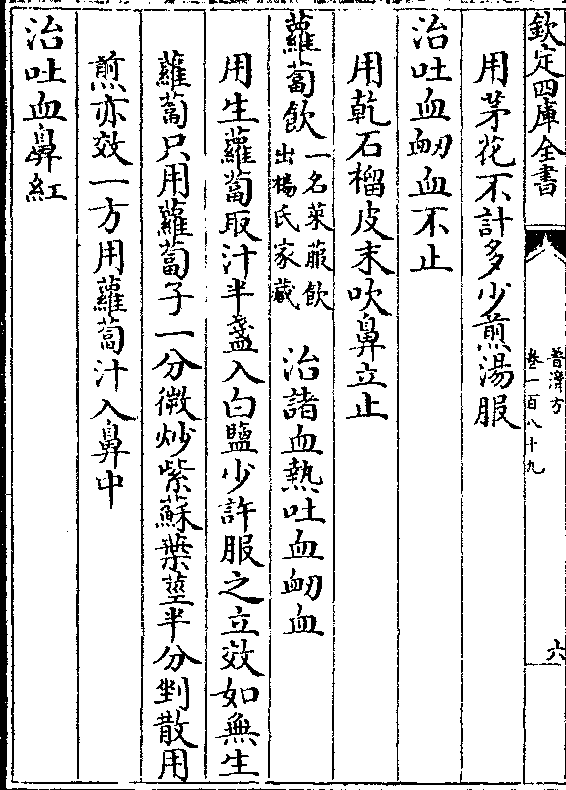 欽定四庫全書
普濟方
卷一百八十九
六
用茅花不計多少煎湯服
治吐血衂血不止
用乾石榴皮末吹鼻立止
蘿蔔飲一名萊菔飲出楊氏家藏 治諸血熱吐血衂血
用生蘿蔔取汁半盞入白鹽少許服之立效如無生
蘿蔔只用蘿蔔子一分微炒紫蘇葉莖半分剉散用
煎亦效一方用蘿蔔汁入鼻中
治吐血鼻紅